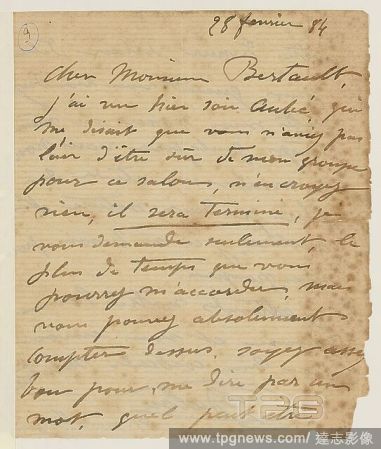 9
28 fevrier 84
Cher Monsieur Bertault,
j'ai vu hier soir Aubé qui
me disait que vous n'aviez pas
l'air d'être sûr de mon groupe
pour ce salon, n'en croyez
rien, il sera terminé, je
vous demande seulement le
plus de temps que vous
pourrez m'accorder, mais
vous pouvez absolument
compter dessus. soyez assez
bon pour me dire par un
mot, quel peut être
TPG
www.tpgnews.com/達志影像